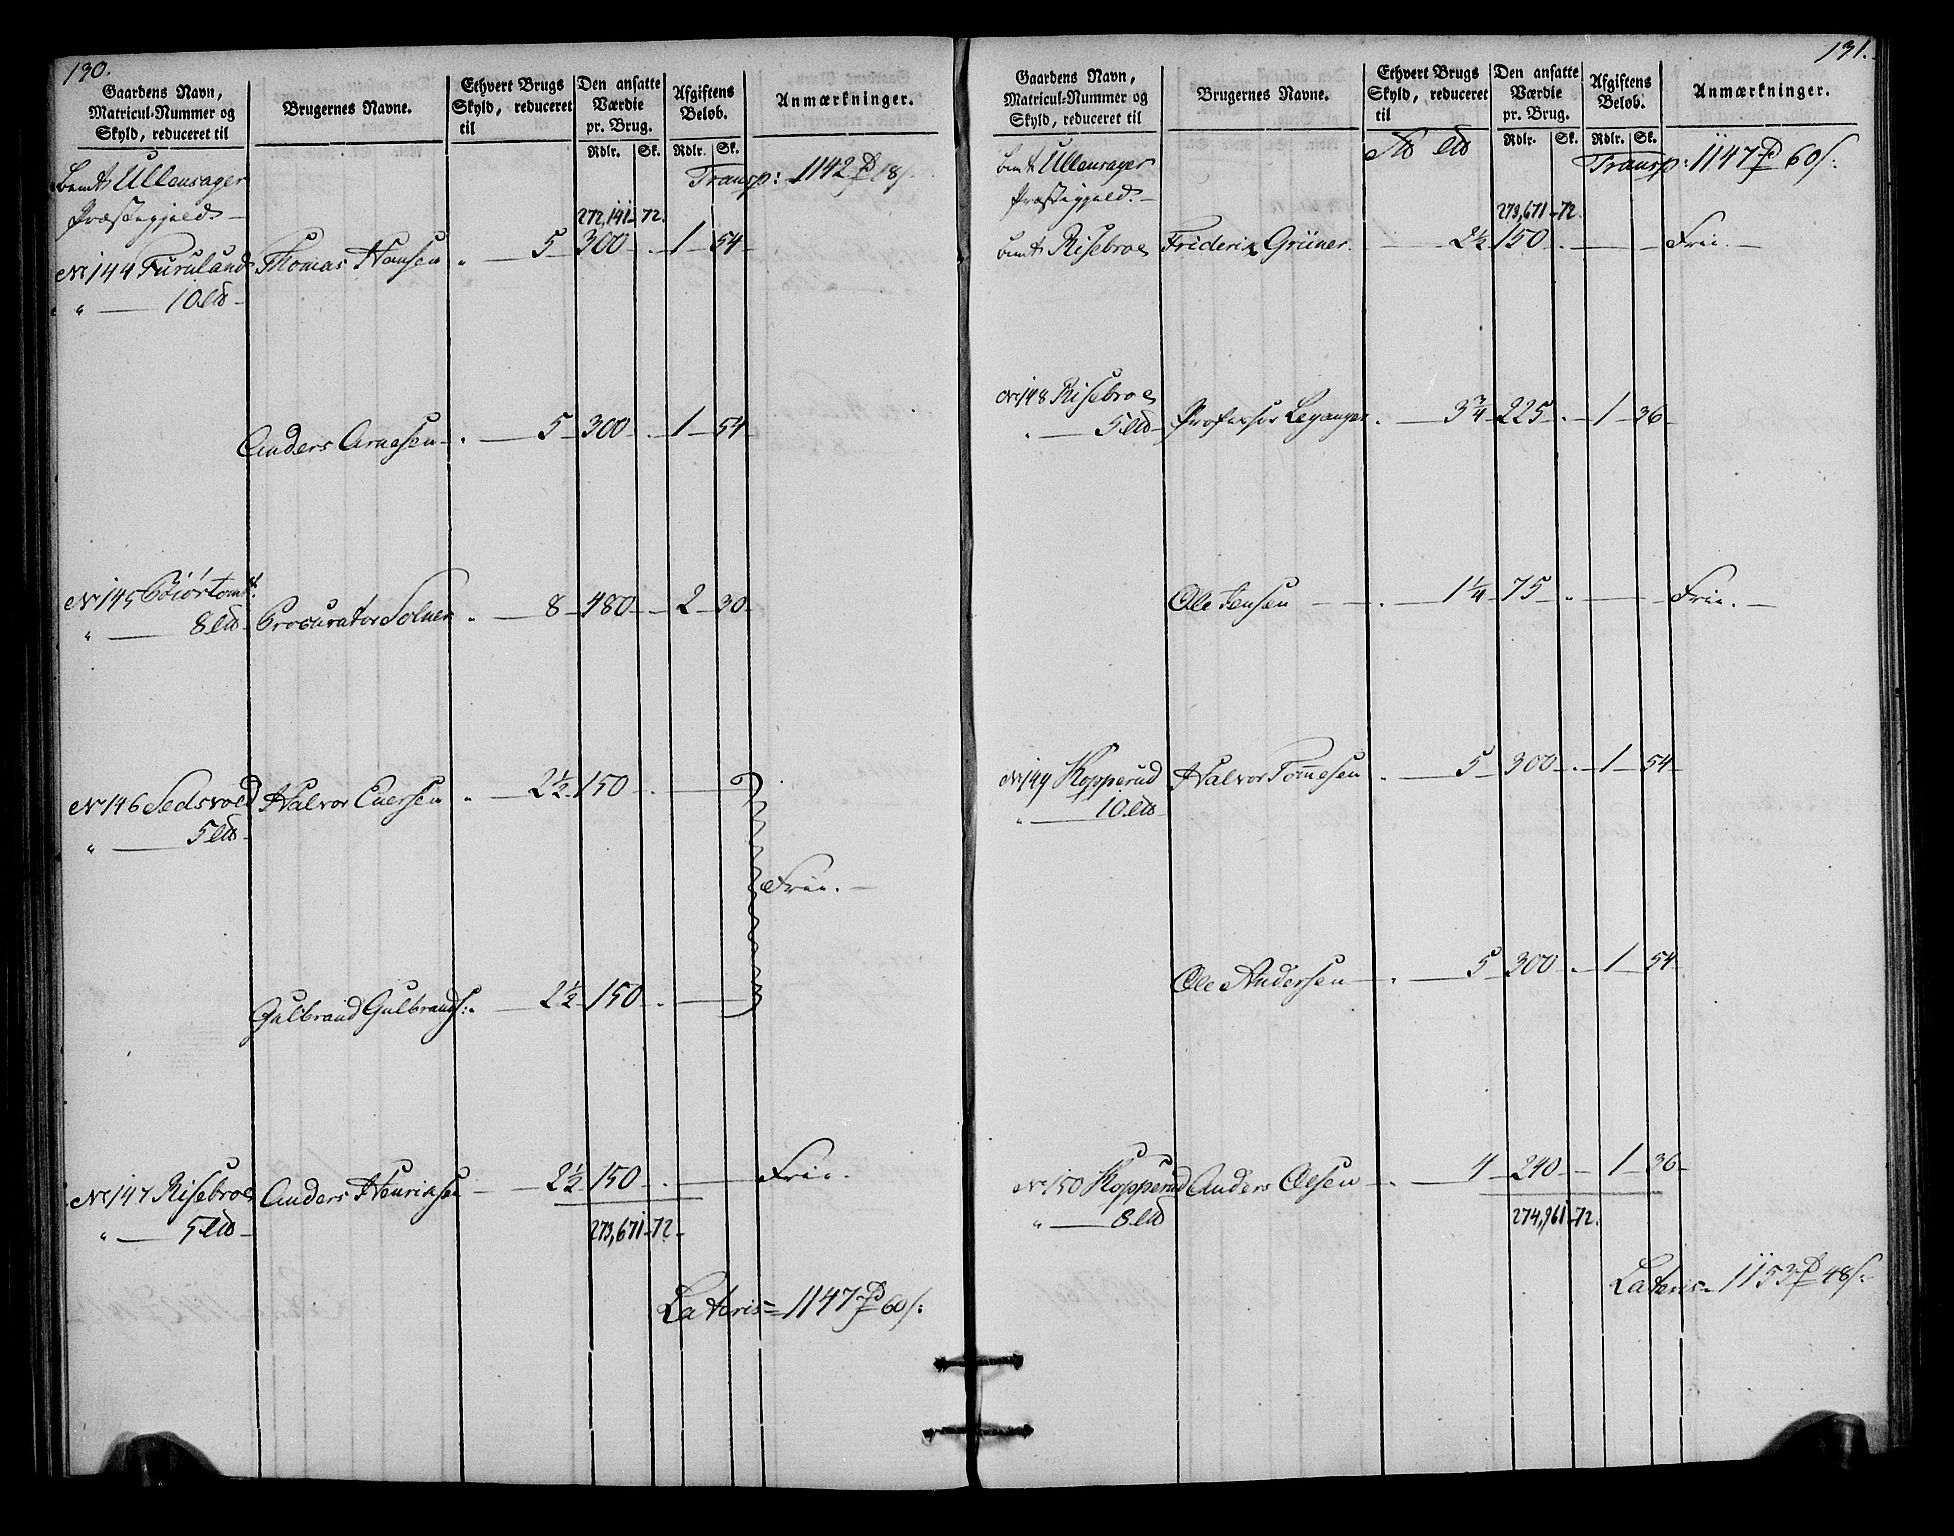 130.
Gaardens Navn, Matricul-Nummer og Skyld, reduceret til | Brugernes Navne. | Ethvert Brugs Skyld, reduceret til | Den ansatte Værdie pr. Brug. Rdlr. Sk. | Afgiftens Beløb. Rdlr. Sk. | Anmærkninger.
Ullensager Transp: 1142 18
Præstegjeld
272,141 - 72.
No 144 Furuland Thomas Hansen 5 - 300 - 1 - 54
" 10
Anders Arnesen 5 - 300 - 1 - 54
No 145
" 8 Procurator Solner 8 - 480 - 2 - 30
No 146 Sedsvold Halvor Enersen 2½ - 150
" 5
Frie.
Gulbrand Gulbrands: 2½ - 150
No 147 Risebroe Anders Henriksen 2½ - 150 Frie.
" 5
273,671 - 72
Lateris = 1147 60
131.
Gaardens Navn, Matricul-Nummer og Skyld, reduceret til | Brugernes Navne. | Ethvert Brugs Skyld, reduceret til | Den ansatte Værdie pr. Brug. Rdlr. Sk. | Afgiftens Beløb. Rdlr. Sk. | Anmærkninger.
Ullensager Transp: 1147 60
Præstegjeld
273,671 - 72.
Risebroe Friderik Grüner 2½ 150 Frie.
No 148 Risebroe
5 Professor Leganger 3¾ 225 - 1 - 36
Ole Jensen 1¼ 75 Frie.
No 149 Kopperud Halvor Tommesen 5 300 - 1 - 54
" 10
Ole Andersen 5 300 - 1 - 54
No 150 Kopperud Anders Olesen 4 240 - 1 - 36
" 8
274,961 - 72.
Lateris = 1153 48